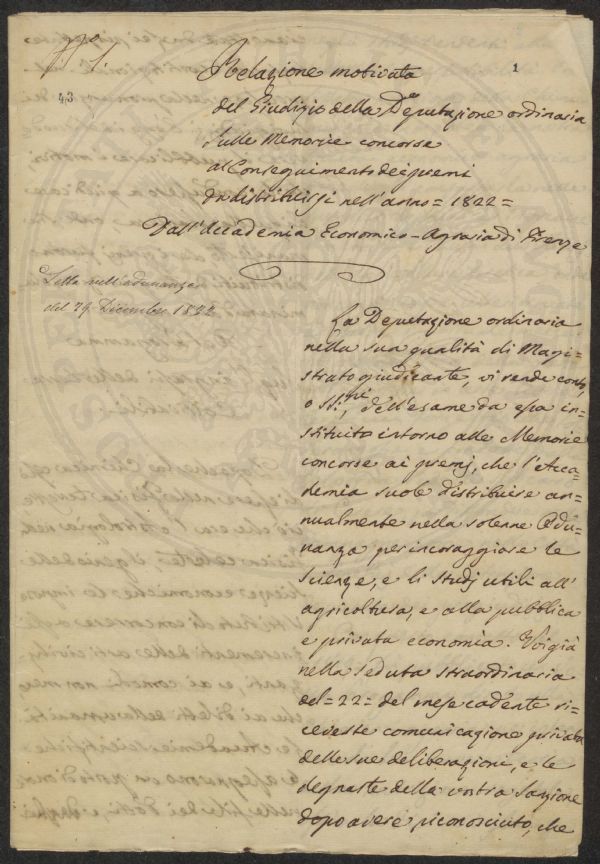 1
43
Relazione motivata
del Giudizio della Deputazione ordinaria
sulle Memorie concorse
al Conseguimento dei premi
da distribuirsi nell'anno = 1822 =
Dall'Accademia Economico-Agraria di Firenze
Letta nell'adunanza
del 29 Dicembre 1822
La Deputazione ordinaria
nella sua qualità di Magi=
strato giudicante, vi rende conto,
o SS.ri, dell'esame da essa in=
stituito intorno alle Memorie
concorse ai premj, che l'Acca=
demia suole distribuire an=
nualmente nella solenne Adu=
nanza per incoraggiare le
scienze, e li studj utili all'
agricoltura, e alla pubblica
e privata economia. Voi già
nella seduta straordinaria
del = 22 = del mese cadente ri=
ceveste comunicazione privata
delle sue deliberazioni, e le
degnaste della vostra sanzione
dopo avere riconosciuto, che